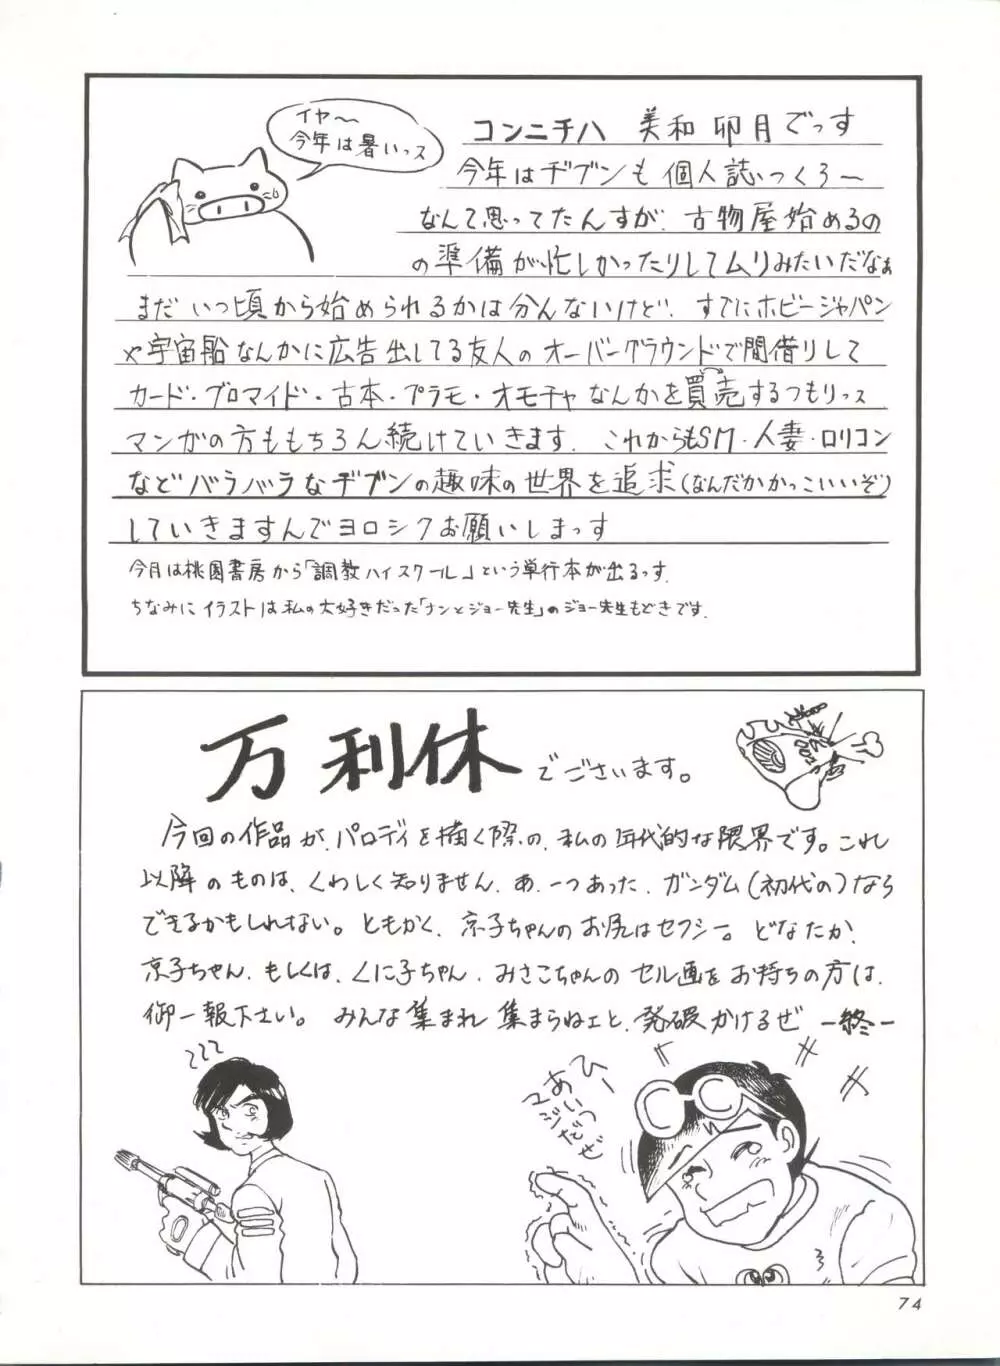 イヤ〜
今年は暑いっス
コンニチハ 美和卯月でっす
今年はヂブンも個人誌つくろ〜
なんて思ってたんすが、古物屋始めるの
の準備が忙しかったりしてムリみたいだなぁ
まだいつ頃から始められるかは分んないけど、すでにホビージャパン
や宇宙船なんかに広告出してる友人のオーバーグラウンドで間借りして
カード・ブロマイド・古本・プラモ・オモチャなんかを買売するつもりっス
マンガの方ももちろん続けていきます。これからもSM・人妻・ロリコン
などバラバラなヂブンの趣味の世界を追求(なんだかかっこいいぞ)
していきますんでヨロシクお願いしまっす
今月は桃園書房から「調教ハイスクール」という単行本が出るっす。
ちなみにイラストは私の大好きだった「ナンとジョー先生」のジョー先生もどきです。
万利休でございます。
今回の作品が、パロディを描く際の、私の年代的な限界です。これ
以降のものは、くわしく知りません。あ、一つあった、ガンダム(初代の)なら
できるかもしれない。ともかく、京子ちゃんのお尻はセクシー。どなたか、
京子ちゃん、もしくは、くに子ちゃん、みさこちゃんのセル画をお持ちの方は、
御一報下さい。みんな集まれ 集まらねェと、発破かけるぜ —終—
ひー
あいつ
マジだぜ
74